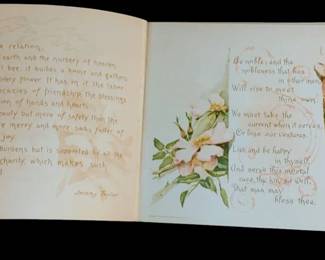 a relation.
earth and the nursery of heaven.
bee, it builds a home and gathers
power. It has in it the labor
icacies of friendship the blessings
ion of hands and hearts.
beauty but more of safety than the
more merry and more sad: fuller of
joy
burdens but is supported by all the
charity, which makes such
Jeremy Taylor
Be noble; and the
nobleness that lies
in other men
Will rise to meet
thine own.
We must take the
current when it serves,
Or lose our ventures.
Live and be happy
in thyself,
And serve this mortal
race, thy kin, so well,
That men may
bless thee.